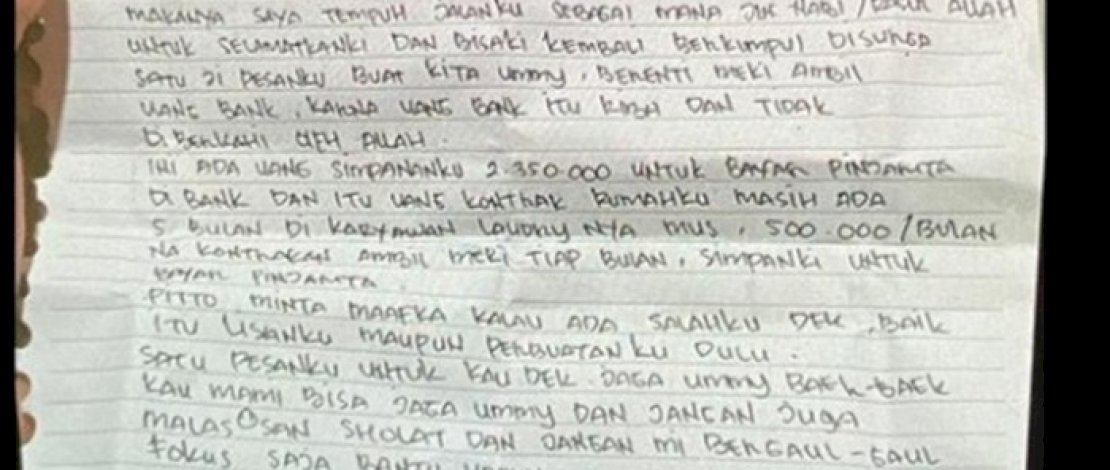 MAKANYA SAYA TEMPUH JALANKU SEBAGAI MANA NABI / ALLAH
UNTUK SELMATKANKI DAN BISAKI KEMBALI BERKUMPUL DISURGA
SATU JI PESANKU BUAT KITA UMMY, BERENTI MEKI AMBIL
UANG BANK, KARNA UANG BANK ITU RIBA DAN TIDAK
DI BERKAHI OLEH ALLAH.
INI ADA UANG SIMPANANKU 2.350.000 UNTUK BAYAR PINJAMTA
DI BANK DAN ITU UANG KONTRAK RUMAHKU MASIH ADA
5 BULAN DI KARYAWAN LAUDNY NYA MUS, 500.000/BULAN
NA KONTRAKAN AMBIL MEKI TIAP BULAN, SIMPANKI UNTUK
BAYAR PINJAMTA.
FITTO MINTA MAAFKA KALAU ADA SALAHKU DEK, BAIK
ITU LISANKU MAUPUN PERBUATANKU DULU.
SATU PESANKU UNTUK KAU DEK JAGA UMMY BAEK-BAEK
KAU MAMI BISA JAGA UMMY DAN JANGAN JUGA
MALAS SHOLAT DAN JANGAN MI BERGAUL-GAUL
FOKUS SAJA BANTU